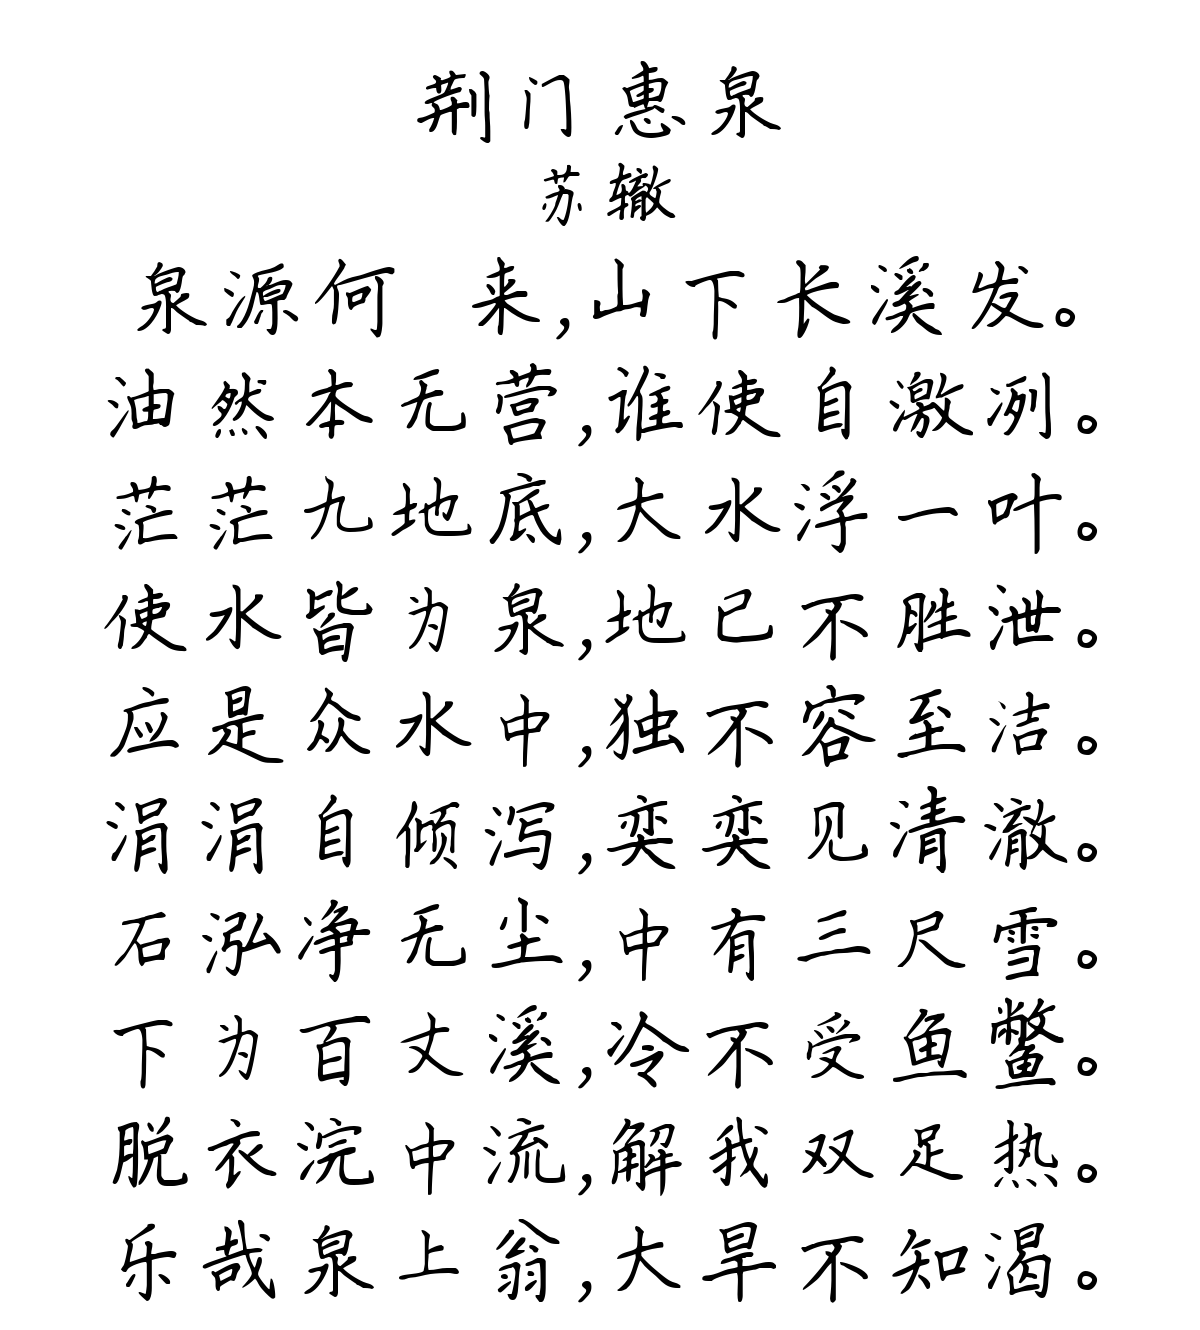 荆门惠泉
苏辙
泉源何 来,山下长溪发。
油然本无营,谁使自激冽。
茫茫九地底,大水浮一叶。
使水皆为泉,地已不胜泄。
应是众水中,独不容至洁。
涓涓自倾泻,奕奕见清澈。
石泓净无尘,中有三尺雪。
下为百丈溪,冷不受鱼鳖。
脱衣浣中流,解我双足热。
乐哉泉上翁,大旱不知渴。